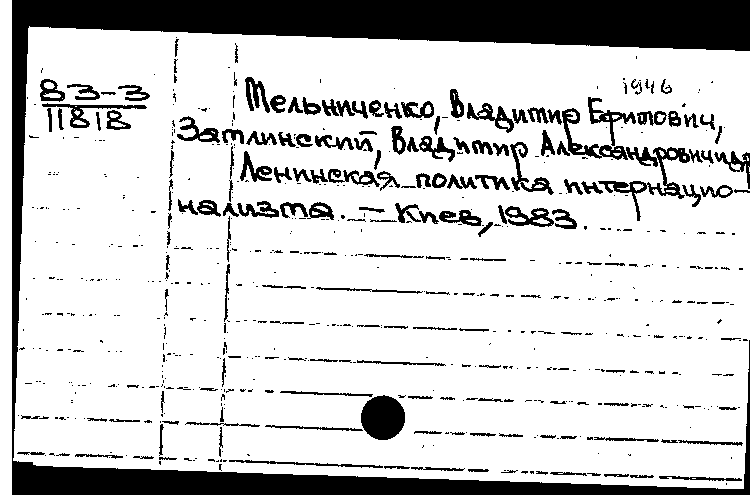 1946
83-3
11818
Мельниченко, Владимир Ефимович,
Замлинский, Владимир Александрович и др
Ленинская политика интернацио-
нализма. – Киев, 1983.